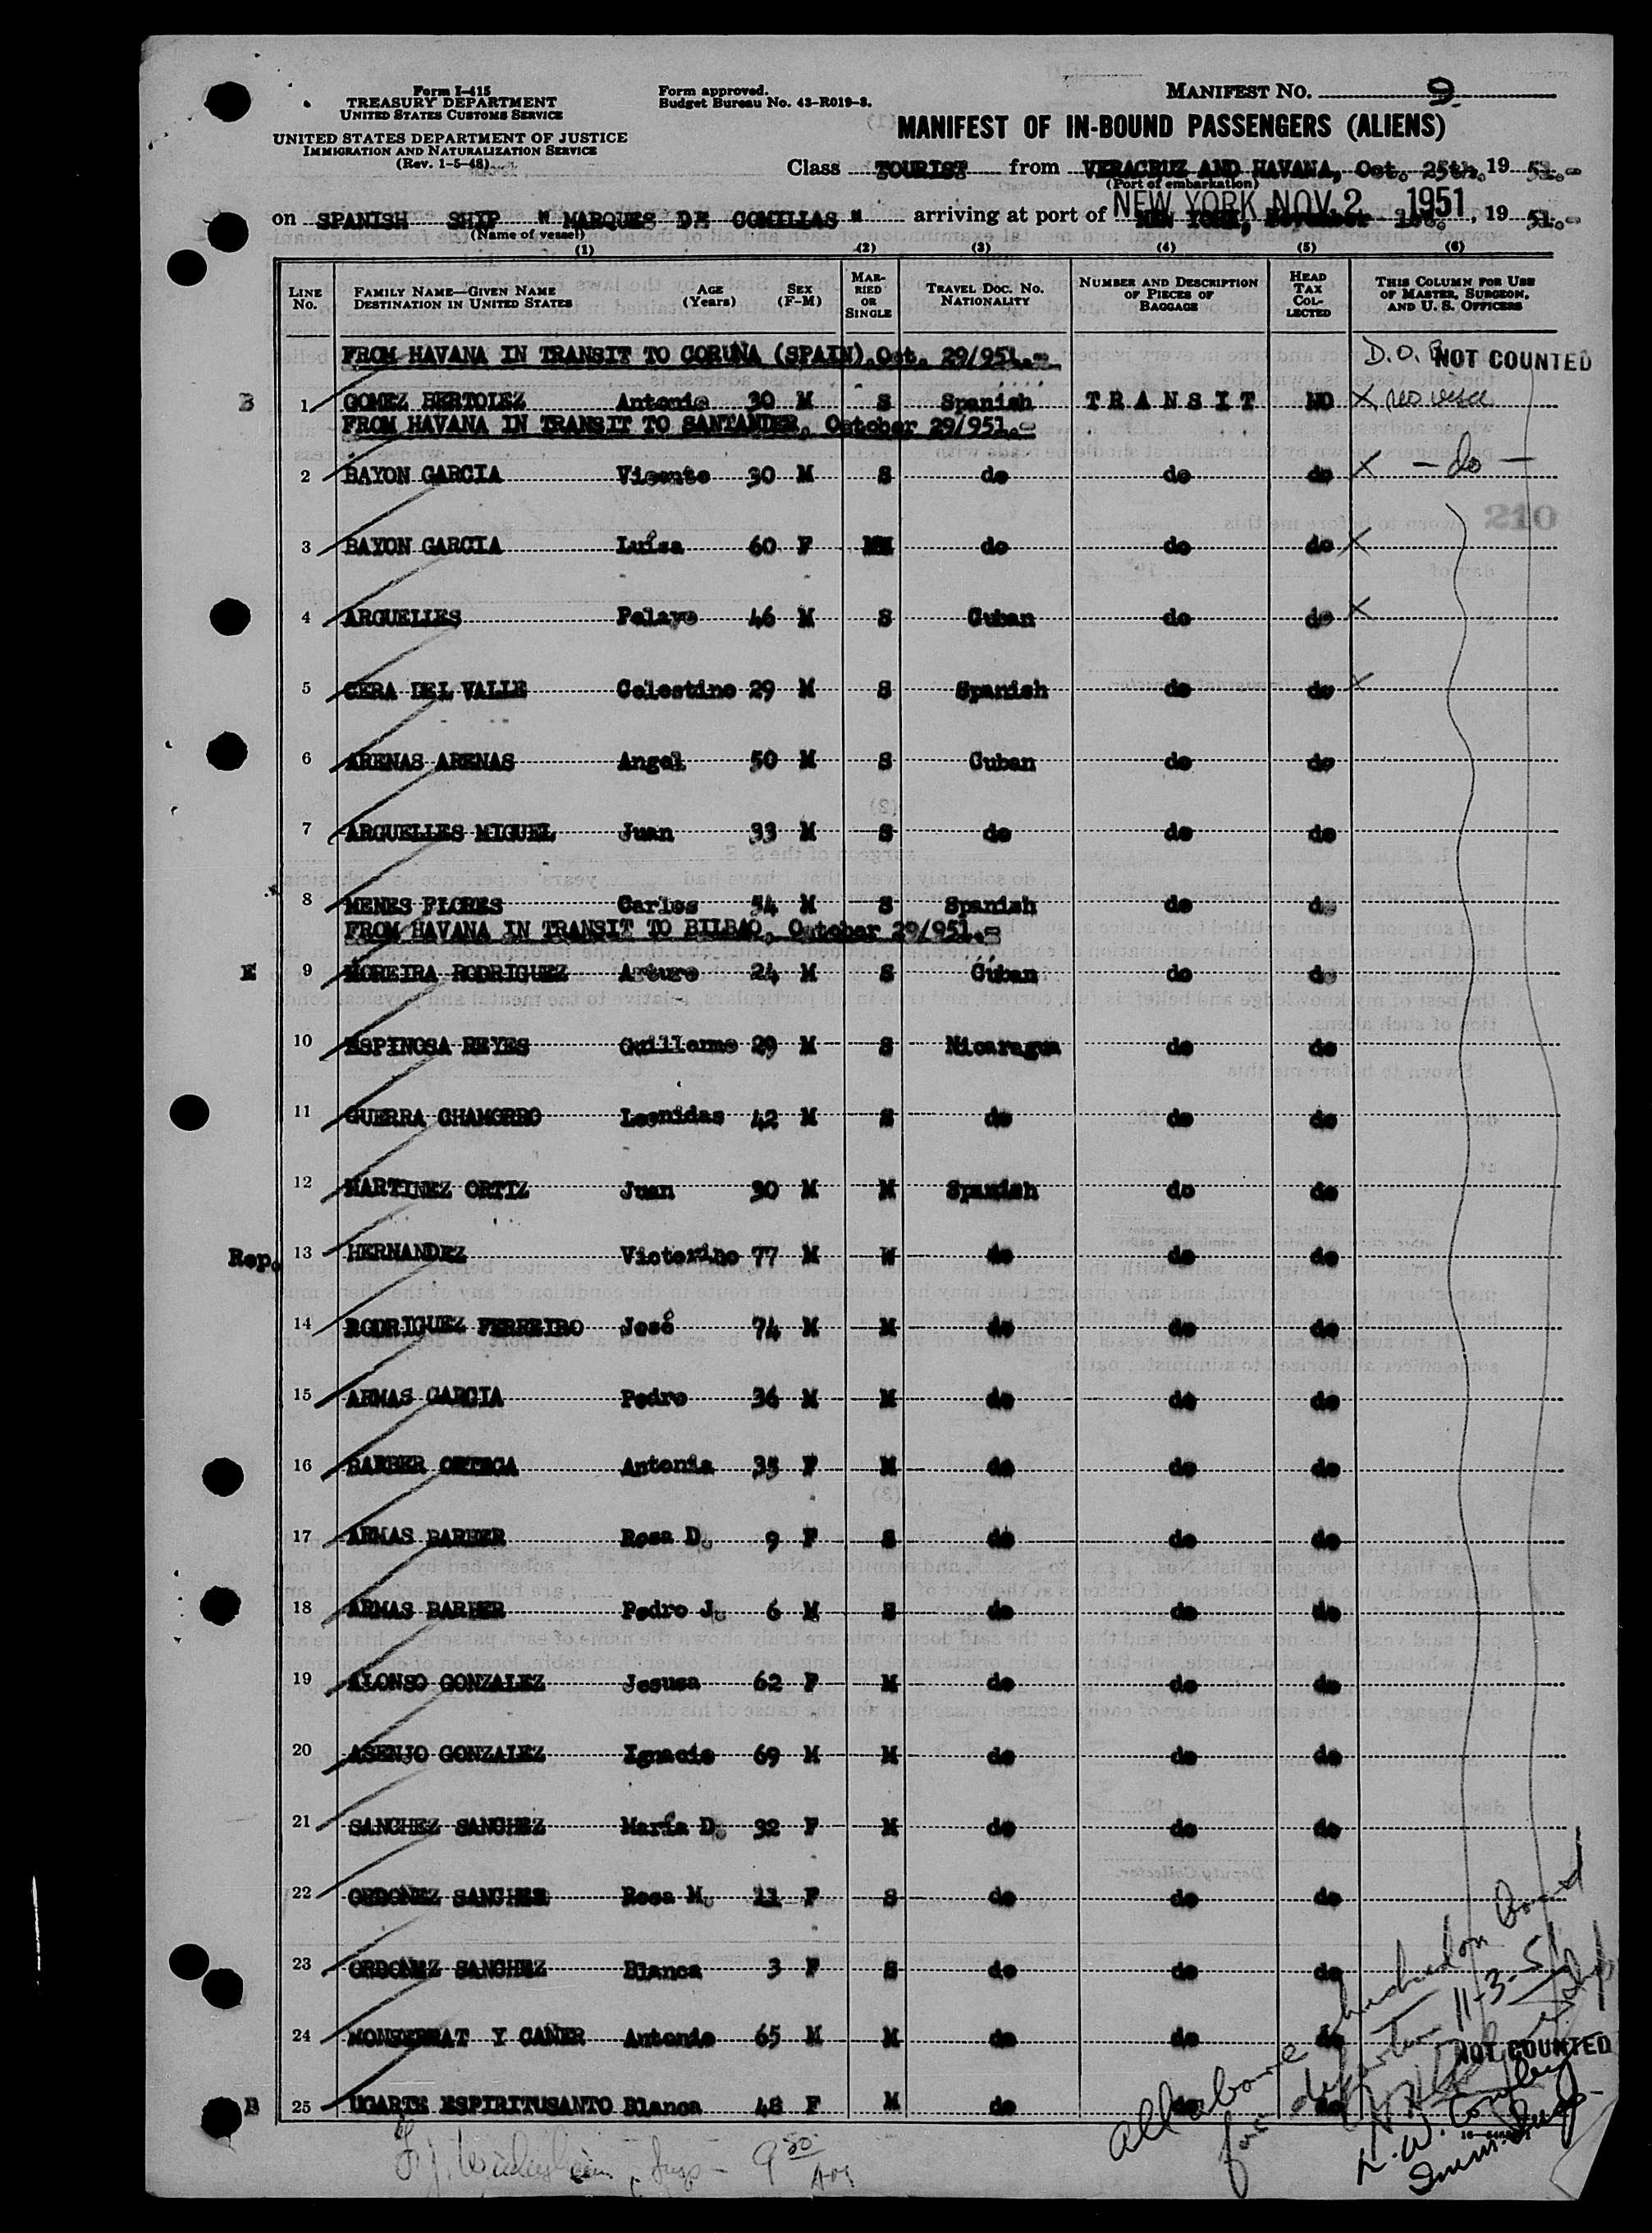 Form I-415
TREASURY DEPARTMENT
UNITED STATES CUSTOMS SERVICE
UNITED STATES DEPARTMENT OF JUSTICE
IMMIGRATION AND NATURALIZATION SERVICE
(Rev. 1-5-48)
Form approved.
Budget Bureau No. 43-R019-3.
MANIFEST NO. 9
MANIFEST OF IN-BOUND PASSENGERS (ALIENS)
Class TOURIST from VERACRUZ AND HAVANA, Oct. 25th, 19 51.-
(Port of embarkation)
on SPANISH SHIP " MARQUES DE COMILLAS " arriving at port of NEW YORK, 19 51.-
NEW YORK NOV 2 1951
(Name of vessel)
(1) (2) (3) (4) (5) (6)
LINE No. FAMILY NAME—GIVEN NAME DESTINATION IN UNITED STATES AGE (Years) SEX (F-M) MARRIED OR SINGLE TRAVEL DOC. NO. NATIONALITY NUMBER AND DESCRIPTION OF PIECES OF BAGGAGE HEAD TAX COLLECTED THIS COLUMN FOR USE OF MASTER, SURGEON, AND U. S. OFFICERS
FROM HAVANA IN TRANSIT TO CORUNA (SPAIN).Oct. 29/951.= D.O.B. NOT COUNTED
B 1 GOMEZ BERTOLEZ Antonio 30 M S Spanish T R A N S I T NO X no visa
FROM HAVANA IN TRANSIT TO SANTANDER, October 29/951.=
2 BAYON GARCIA Vicente 30 M S do do do X - do -
210
3 BAYON GARCIA Luisa 60 F do do do X
4 ARGUELLES Pelayo 46 M S Cuban do do X
5 CERA DEL VALLE Celestino 29 M S Spanish do do X
6 ARENAS ARENAS Angel 50 M S Cuban do do
7 ARGUELLES MIGUEL Juan 33 M S do do do
8 MENES FLORES Carlos 54 M S Spanish do do
FROM HAVANA IN TRANSIT TO BILBAO, October 29/951.=
E 9 MOREIRA RODRIGUEZ Arturo 24 M S Cuban do do
10 ESPINOSA REYES Guillermo 29 M S Nicaragua do do
11 GUERRA CHAMORRO Leonidas 42 M S do do do
12 MARTINEZ ORTIZ Juan 30 M M Spanish do do
Rep. 13 HERNANDEZ Victorino 77 M W do do do
14 RODRIGUEZ FERREIRO José 74 M M do do do
15 ARMAS GARCIA Pedro 36 M M do do do
16 BARBER ORTEGA Antonia 35 F M do do do
17 ARMAS BARBER Rosa D. 9 F S do do do
18 ARMAS BARBER Pedro J. 6 M S do do do
19 ALONSO GONZALEZ Jesusa 62 F M do do do
20 ASENJO GONZALEZ Ignacio 69 M M do do do
21 SANCHEZ SANCHEZ María D. 32 F M do do do
22 ORDONEZ SANCHEZ Rosa M. 11 F S do do do
23 ORDONEZ SANCHEZ Blanca 3 F S do do do
24 MONSERRAT Y CANER Antonio 65 M M do do do
NOT COUNTED
B 25 UGARTE ESPIRITUSANTO Blanca 48 F M do do do
All above checked on board
for departure 11-3-51
Insp - 9 50